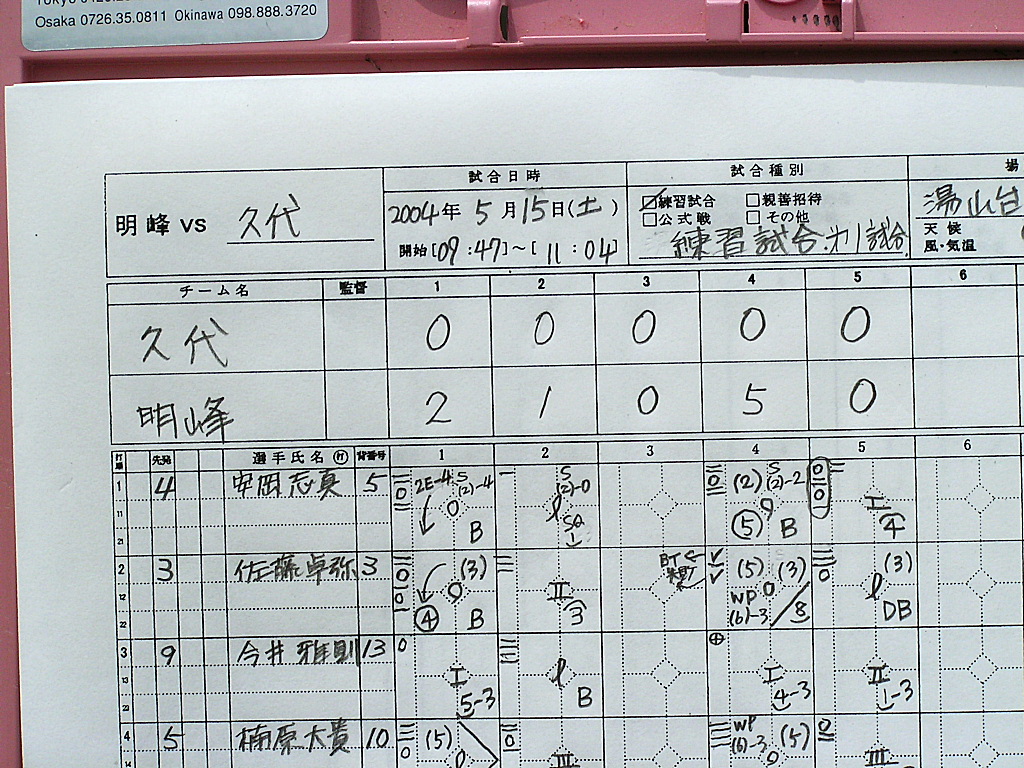 Osaka 0726.35.0811 Okinawa 098.888.3720
明峰 VS 久代
試合日時
2004年 5月15日(土)
開始[09:47]~[11:04]
試合種別
練習試合 親善招待
公式戦 その他
練習試合 第1試合
場
湯山台
天候
風・気温
チーム名 監督 1 2 3 4 5 6
久代 0 0 0 0 0
明峰 2 1 0 5 0
打順 先発 選手氏名 打 背番号 1 2 3 4 5 6
1 4 安岡志真 5
2E-4 S (2)-4 B
S (2)-0 SQ 1
(2) S (2)-2 5 B
I 4
11
21
2 3 佐藤卓弥 3
(3) 4 B
II 3
(5) (3) WP (6)-3 8
(3) DB
12
22
3 9 今井雅則 13
I 5-3
B
I 4-3
II 1-3
13
23
4 5 楠原大貴 10
(5)
III
WP (6)-3 (5)
III